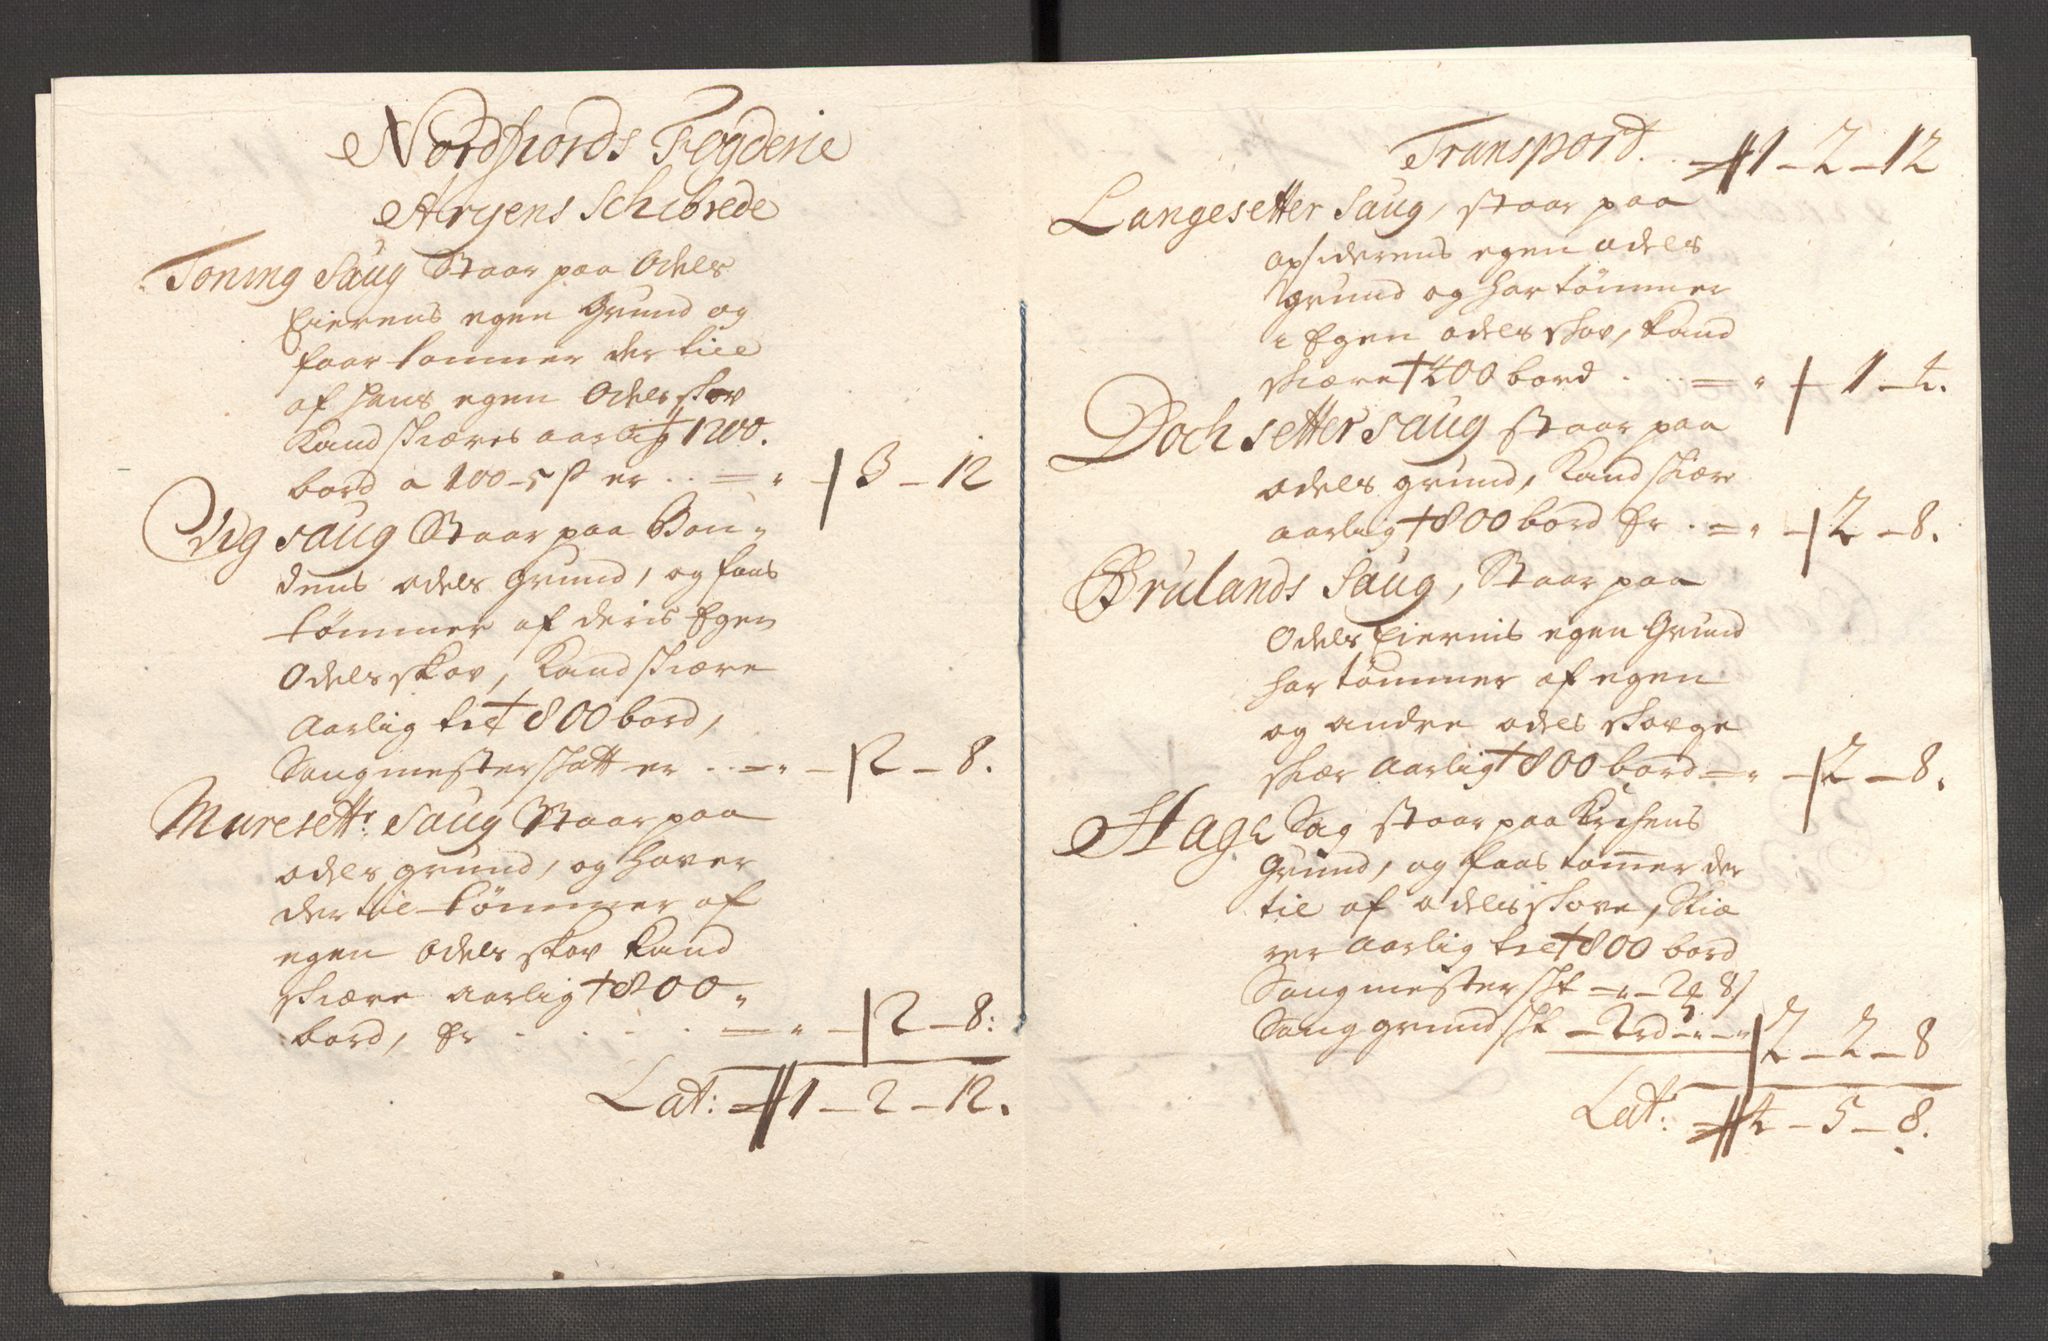 Nordfiords Fogderie
Aryens Schibrede
Toning Saug Staar paa Odels
Eierens egen Grund og
faar tommer der till
af hans egen Odels skov
Kand skiæres aarlig 1200.
bord a 100 - 5 β er .. = " - 3 - 12
Vig saug Staar paa Bon-
dens odels grund, og faas
tømmer af deris Egen
Odels skov, Kand skiære
Aarlig till 800 bord,
Saugmester skatt er .. = " - 2 - 8.
Muresettr: Saug Staar paa
odels grund, og haver
der til tømmer af
egen Odels skov Kand
skiære aarlig 800
bord, Er . . . . = " - 2 - 8:
Lat: 1 - 2 - 12.
Transport. . 1 - 2 - 12
Langesetter Saug, staar paa
opsiderens egen odels
grund og har tømmer
i Egen odels skov, kand
skiære 400 bord . . . = " - 1 - 4.
Doch setter saug staar paa
odels grund, Kand skiære
aarlig 800 bord Er . = " - 2 - 8.
Brulands Saug, Staar paa
Odels Eiernis egen Grund
har tømmer af egen
og andre odels skovge
skiær Aarlig 800 bord = " - 2 - 8.
Hage Sag staar paa Kirchens
Grund, og faas tomer der
til af odelsskove, Skiæ
rer Aarlig till 800 bord
Saugmester skt = " - 2 8 β
Sauggrund skt - 2 rd - " - " 2 - 2 - 8
Lat: 4 - 5 - 8.